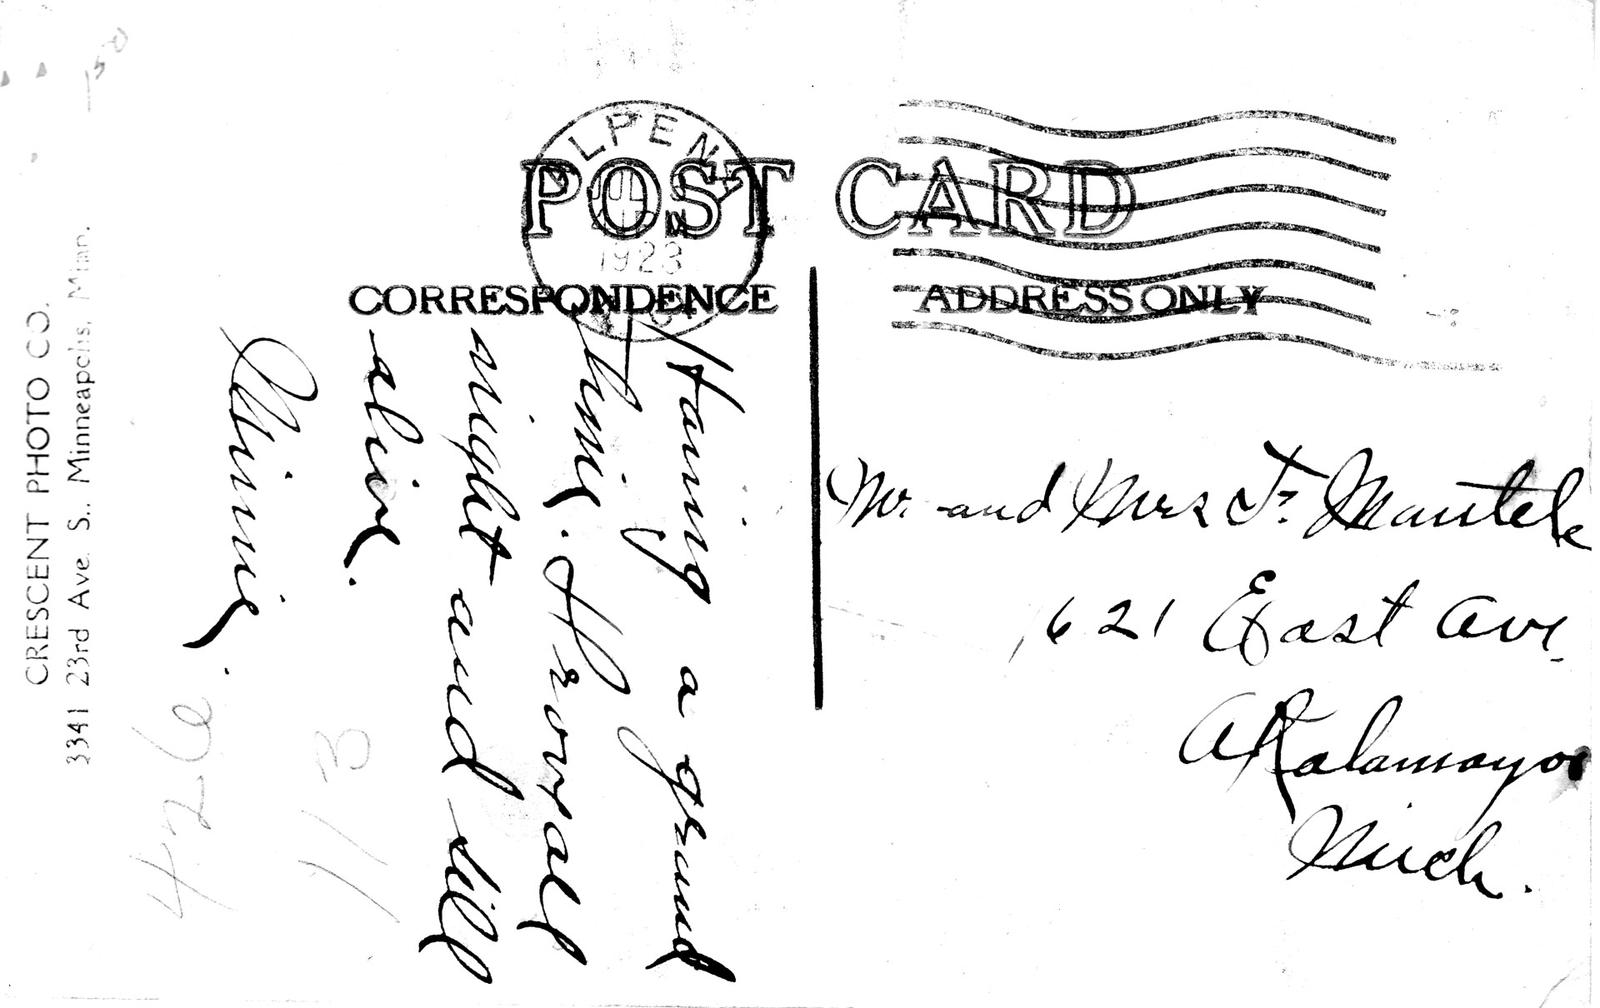 POST CARD
CORRESPONDENCE
ADDRESS ONLY
ALPENA
JUL
1923
Having a grand
time.
night and still
alive.
Minnie.
Mr. and Mrs F. Mantele
621 East Ave.
Kalamazoo
Mich.
CRESCENT PHOTO CO.
3341 23rd Ave. S., Minneapolis, Minn.
426
113
50